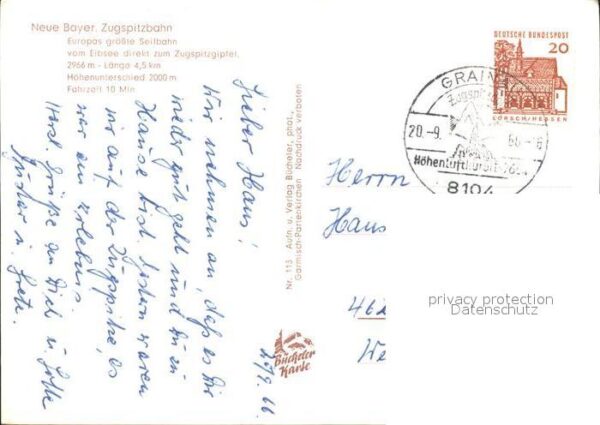 Neue Bayer. Zugspitzbahn
Europas größte Seilbahn
vom Eibsee direkt zum Zugspitzgipfel.
2966 m - Länge 4,5 km
Höhenunterschied 2000 m
Fahrzeit 10 Min.
Lieber Hans!
Wir nehmen an, daß es Dir
wieder gut geht und Du zu
Hause bist. Gestern waren
wir auf der Zugspitze, es
war ein Erlebnis.
Herzl. Grüße an Dich u. Lotte
u. Grete.
20/9. 66
Nr. 113 Aufn. u. Verlag Bücheler, phot.,
Garmisch-Partenkirchen Nachdruck verboten
Bücheler
Karte
DEUTSCHE BUNDESPOST
20
LORSCH/HESSEN
GRAIN
20.-9. 66
Höhenluftkurort
8104
Herrn
Hans
462
We
privacy protection
Datenschutz